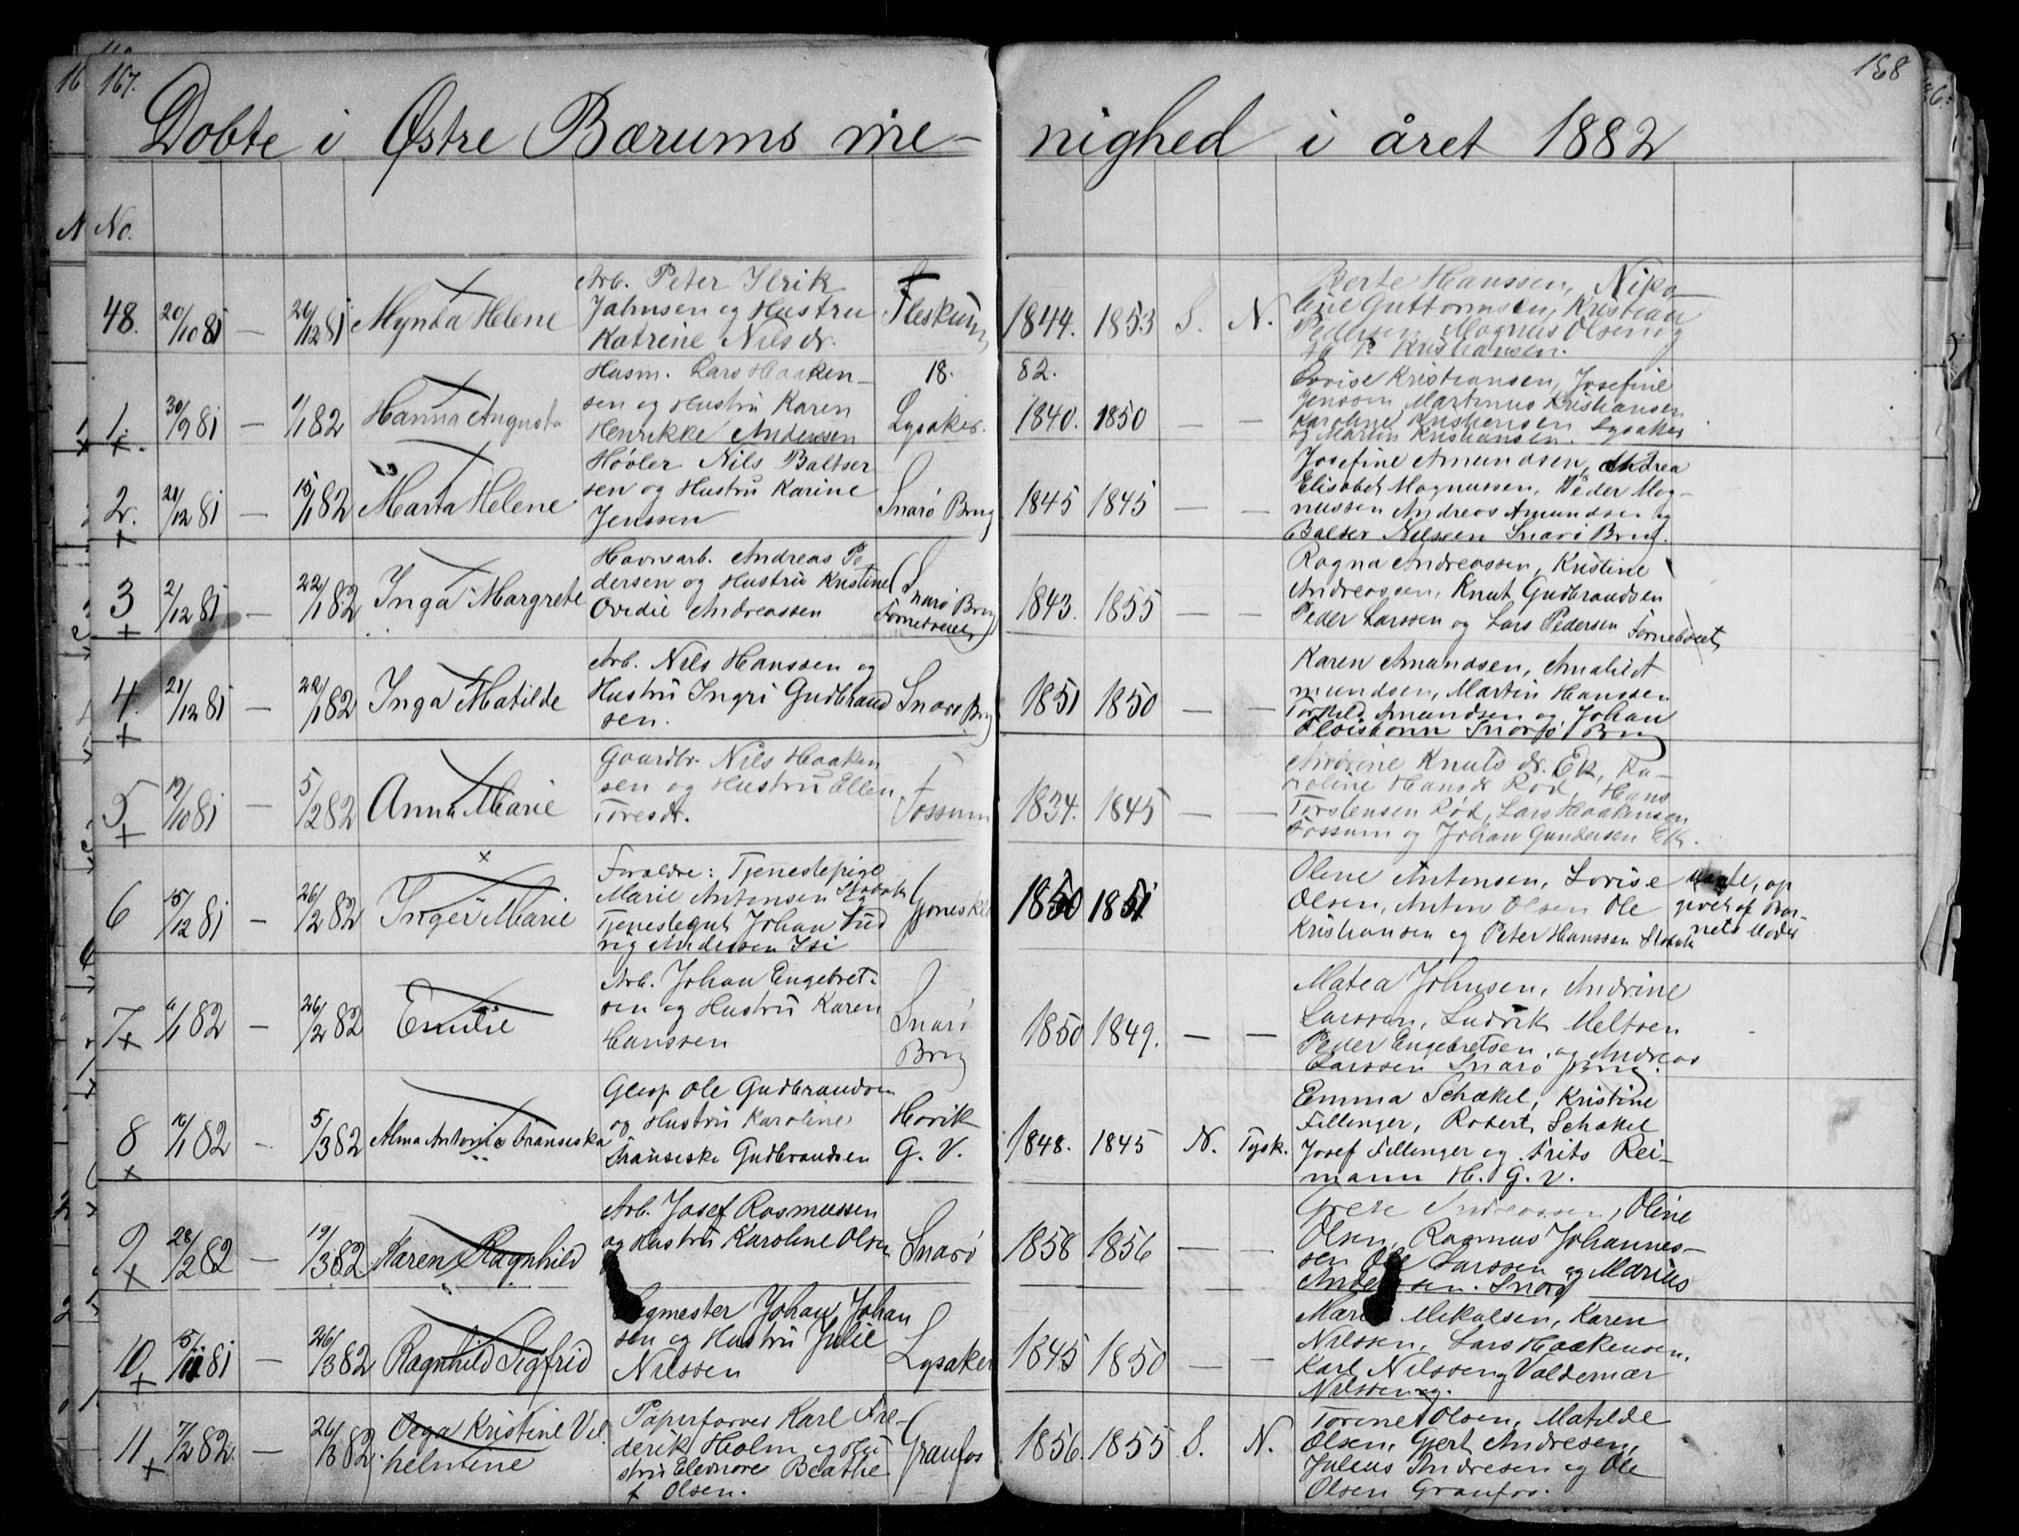 167.
168
Døbte i Østre Bærums me- nighed i året 1882
No.
48. 20/10 81 — 26/12 81 Mynta Helene Arb. Peter Ilrik Fleskum 1844. 1853 S. N. Berte Hanssen, Niko-
Jahnsen og Hustru line Guttormsen, Kristian
Katrine Nilsdr. Pedersen, Magnus Olsen og
Kristiansen.
18. 82.
1. 30/9 81 — 1/1 82 Hanna Augusta Husm. Lars Haaken- Lysaker. 1840. 1850 — — Lovise Kristiansen, Josefine
sen og Hustru Karen Jenssen, Martinus Kristiansen
Henrikke Andersen Karoline Kristiansen Lysaker
og Martin Kristiansen.
2. 21/12 81 — 15/1 82 Marta Helene Høvler Nils Baltser Snarø Brug 1845 1845 — — Josefine Amundsen, Andrea
sen og Hustru Karine Elisabet Magnussen, Peder Mag-
Jenssen nussen Andreas Amundsen og
Balser Nilssen Snarø Brug.
3 2/12 81 — 22/1 82 Inga Margrete Havnearb. Andreas Pe Snarø Brug 1843. 1855 — — Ragna Andreassen, Kristine
dersen og Hustru Kristine Andreassen, Knut Gudbrandsen
Ovidie Andreassen Peder Larssen og Lars Pedersen
4. 21/12 81 — 22/1 82 Inga Matilde Arb. Nils Hanssen og Snarø Brug 1851 1850 — — Karen Amundsen, Amalie A
Hustru Ingri Gudbrand mundsen, Martin Hanssen
sen. Torkild Amundsen og Johan
Snarø Brug
5 19/10 81 — 5/2 82 Anna Marie Gaardbr. Nils Haaken Fossum 1834. 1845 — — Andrine Knuts dr. Ek, Ka-
sen og Hustru Ellen roline Hansdr Rød, Hans
Toresdr. Torstensen Rød, Lars Haakensen
Fossum og Johan Gundersen Ek.
6 15/12 81 — 26/2 82 Inger Marie Forældre: Tjenestepige 1850 1851 Olene Antonsen, Lovise ægte, op
Marie Antonsen Stabæk Olsen, Anton Olsen Ole givet af Bar-
Tjenestegut Johan Lud Kristiansen og Peter Hanssen Stabæk nets Moder
vig Andersen Isi
7 6/1 82 — 26/2 82 Emilie Arb. Johan Engebret- Snarø 1850 1849. — — Matea Johnsen, Andrine
sen og Hustru Karen Brug Larssen, Ludvik Meltsen
Hanssen Peder Engebretsen og Andreas
Larssen Snarø Brug.
8 10/1 82 — 5/3 82 Alma Antonie Fransiska Glasp Ole Gudbrandsen Høvik 1848. 1845 N. Tysk. Emma Schakel, Kristine
og Hustru Karoline G. V. Fillinger, Robert Schakel
Fransiska Gudbrandsen Josef Fillinger og Frits Rei-
mann H. G. V.
9 28/2 82 — 19/3 82 Karen Ragnhild Arb. Josef Rasmussen Snarø 1858 1856 — — Grete Andreassen, Oline
og Hustru Karoline Olsen Olsen, Rasmus Johannes-
sen Ole Larssen og Marius
Andersen. Snarø
10 5/11 81 — 26/3 82 Ragnhild Sigfrid Sagmester Johan Johan Lysaker 1845 1850 — — Marie Mikalsen, Karen
sen og Hustru Julie Nilssen, Lars Haakensen,
Nilssen Karl Nilssen og Valdemar
Nilssen
11 7/2 82 — 26/3 82. Olga Kristine Vil Papirfarver Karl Fre- Granfos 1856. 1855 S. N. Torine Olsen, Matilde
helmine derik Holm og Hu Olsen, Gjert Andresen,
stru Eleonore Beathe Julius Andresen og Ole
f Olsen. Olsen Granfos.